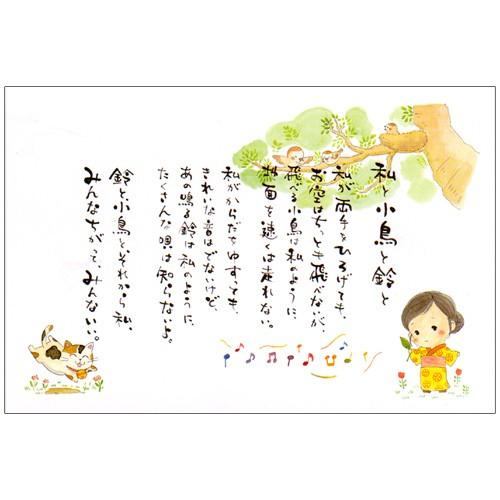 私と小鳥と鈴と
私が両手をひろげても、
お空はちっとも飛べないが、
飛べる小鳥は私のように、
地面を速くは走れない。
私がからだをゆすっても、
きれいな音はでないけど、
あの鳴る鈴は私のように、
たくさんな唄は知らないよ。
鈴と、小鳥と、それから私、
みんなちがって、みんないい。